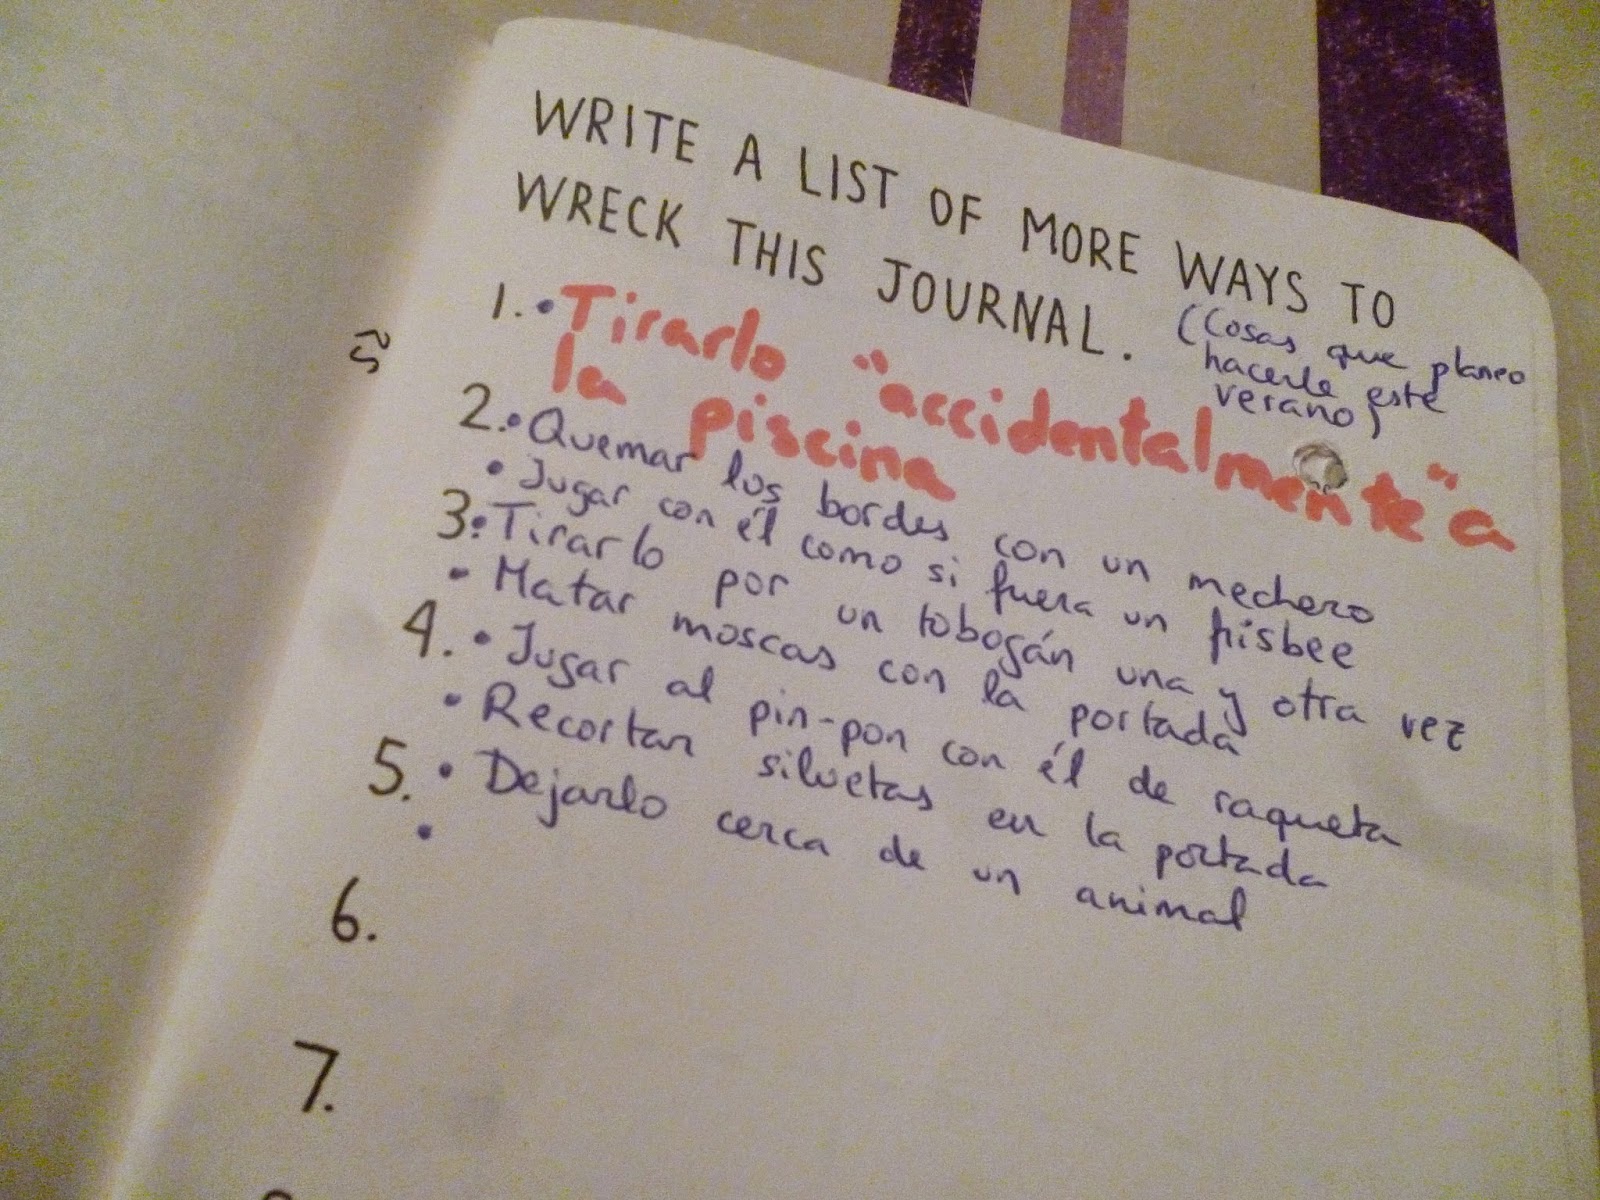 WRITE A LIST OF MORE WAYS TO
WRECK THIS JOURNAL.
(Cosas que planeo
hacerle este
verano)
1. • Tirarlo "accidentalmente" a
la piscina
2. • Quemar los bordes con un mechero
• Jugar con él como si fuera un frisbee
3. • Tirarlo por un tobogán una y otra vez
• Matar moscas con la portada
4. • Jugar al pin-pon con él de raqueta
• Recortar siluetas en la portada
5. • Dejarlo cerca de un animal
•
6.
7.